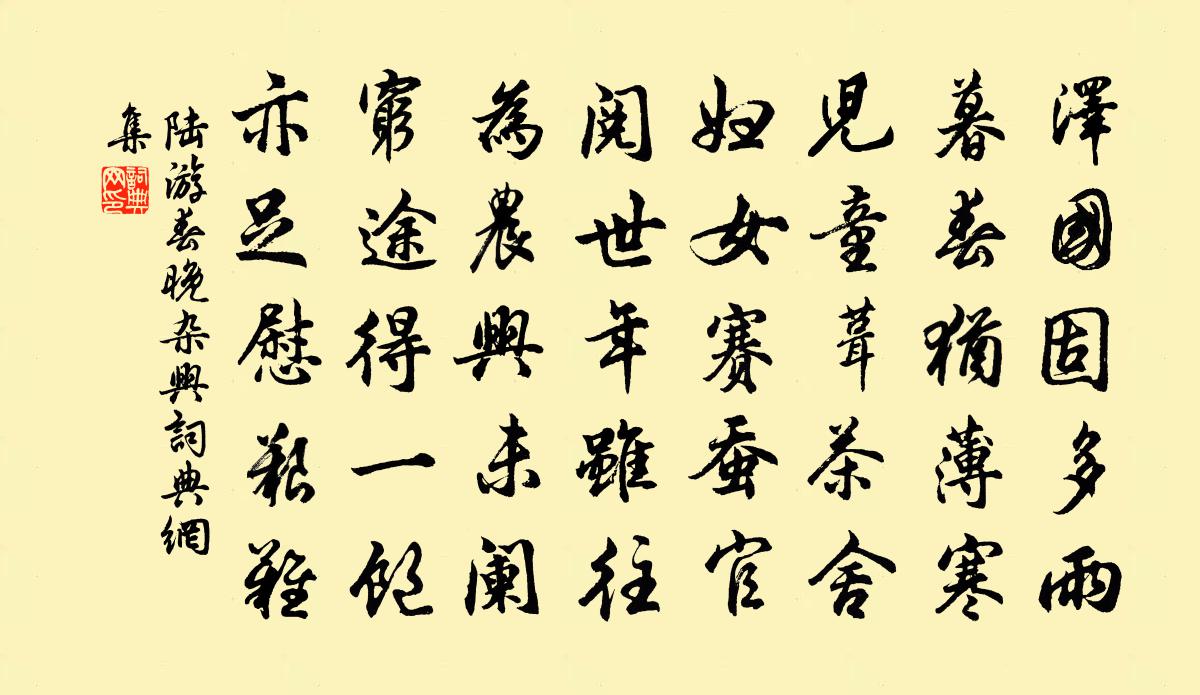 澤國固多雨
暮春猶薄寒
児童葺茶舍
妇女賽蚕官
閱世年雖往
為農興未阑
窮途得一飽
亦足慰艱難
陆游春晚杂興詞典網
集
詞典
网印